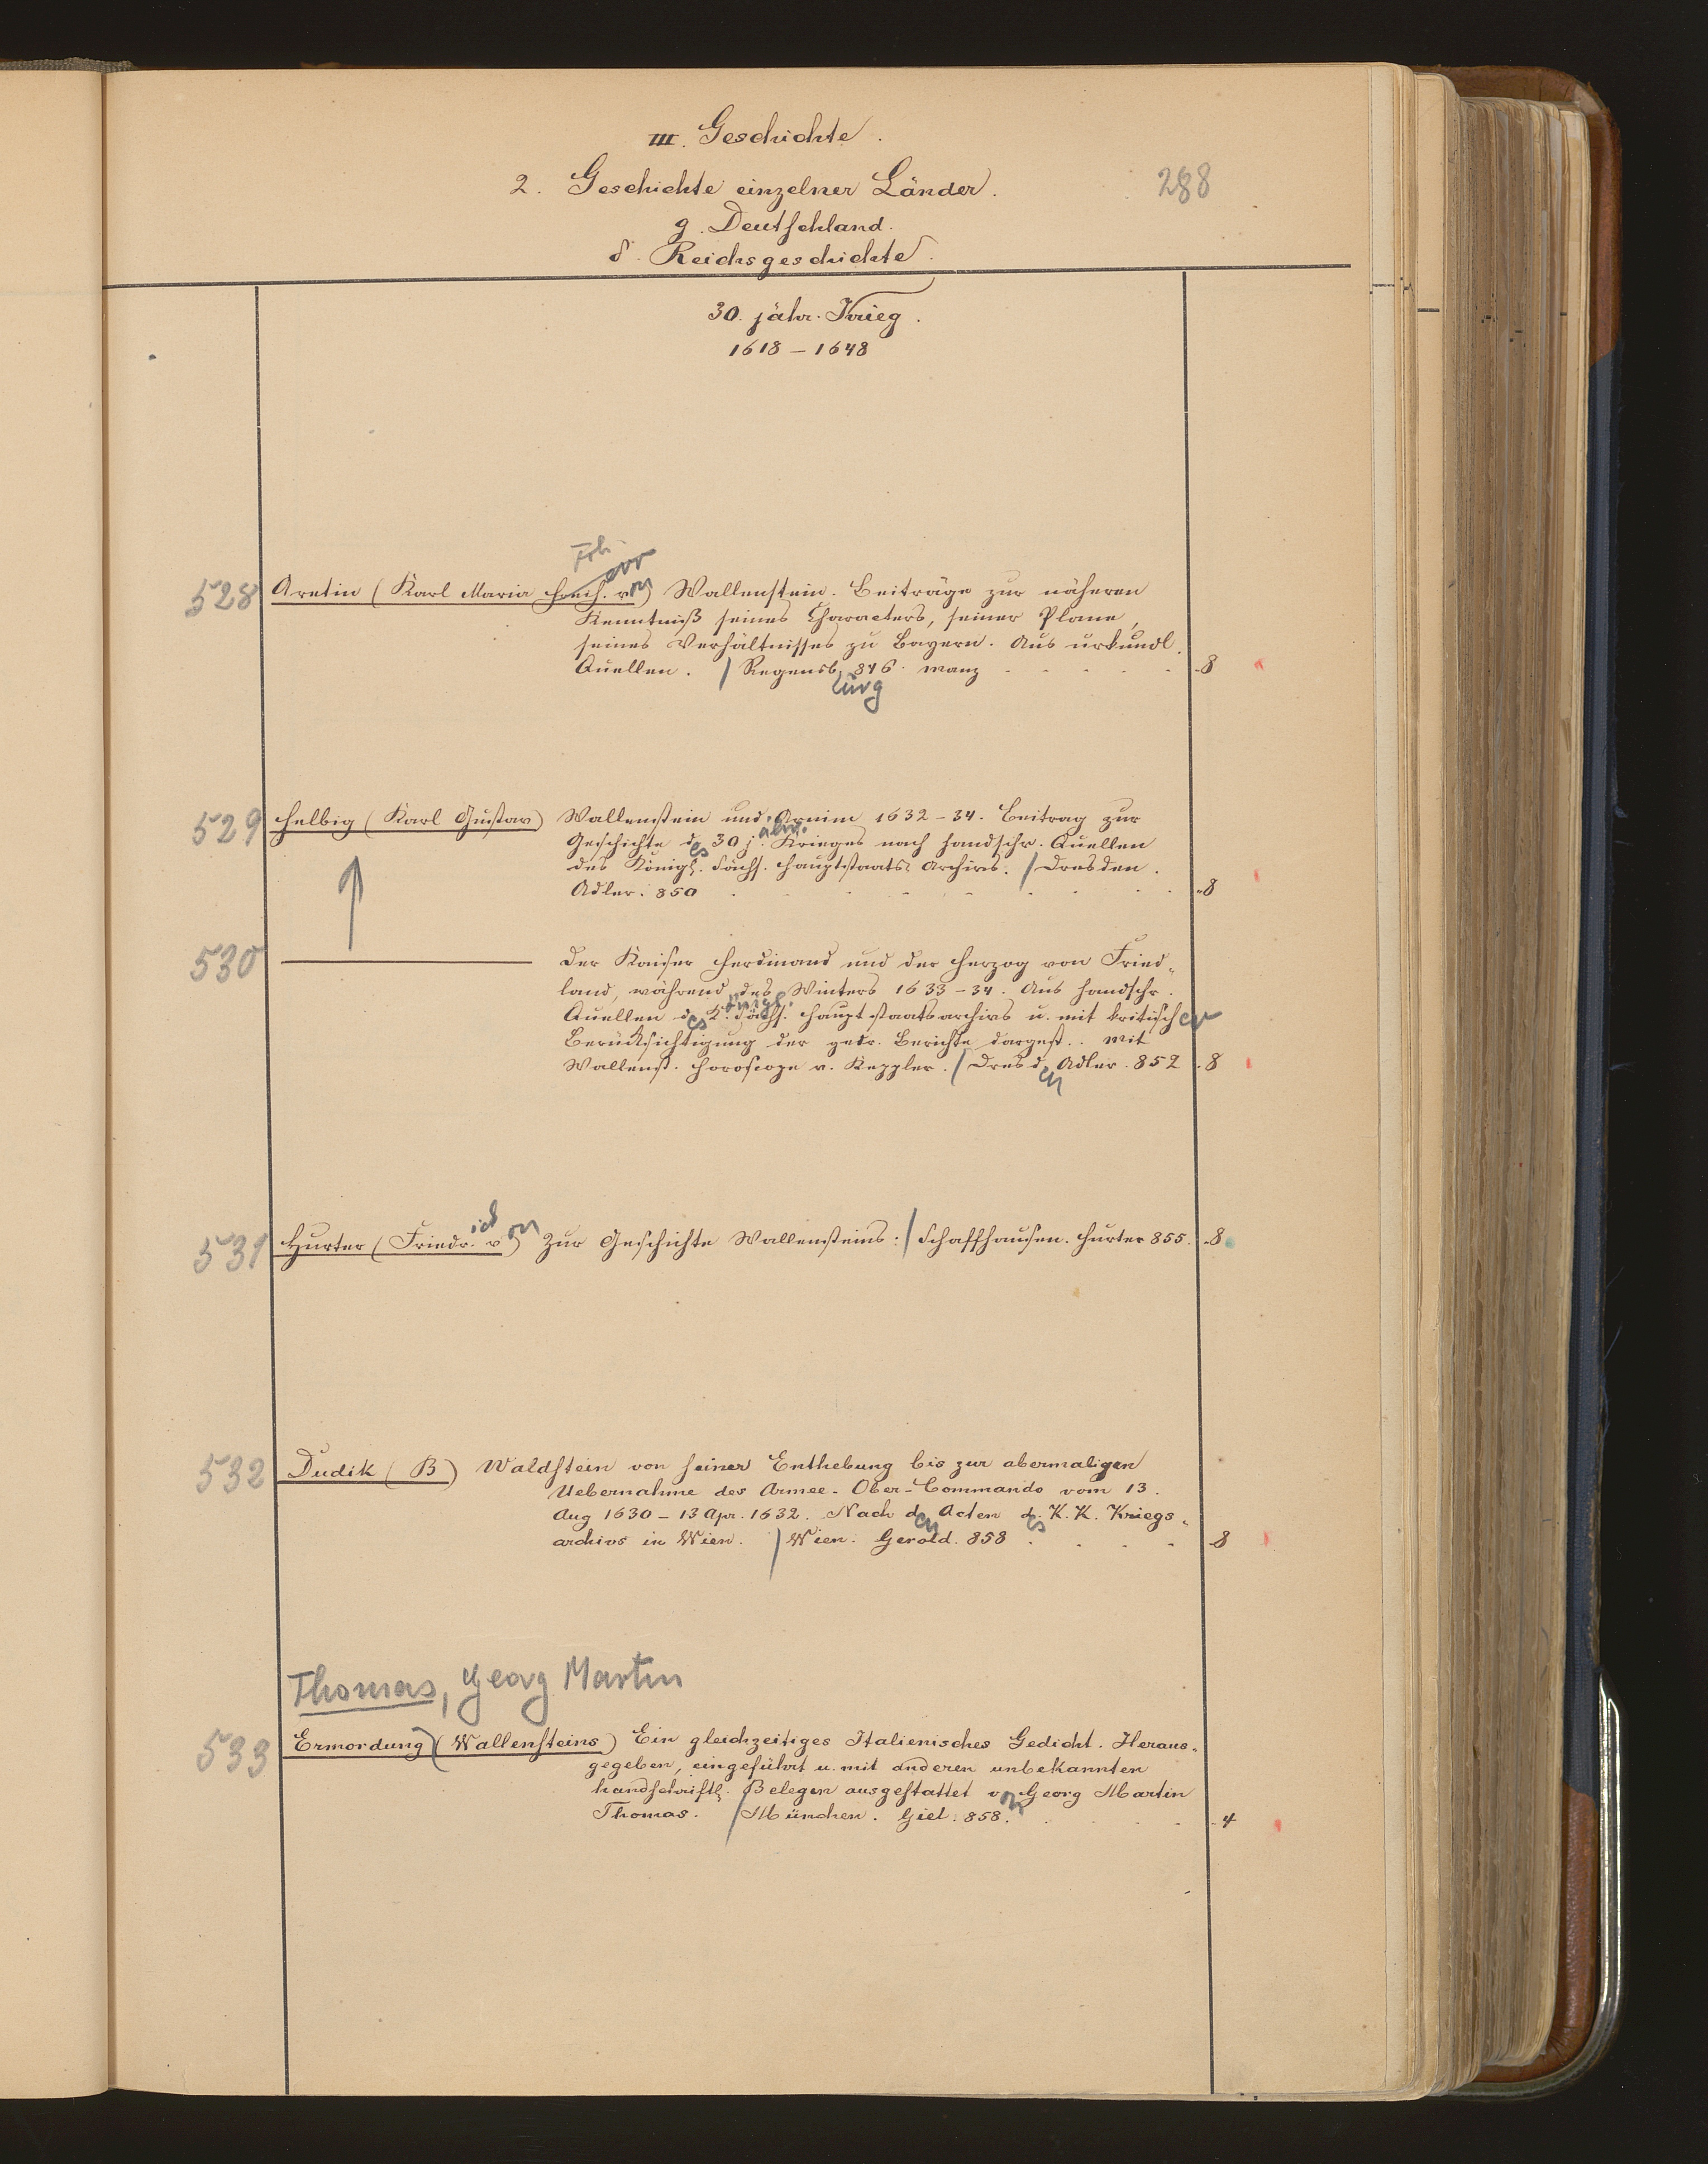 III. Geschichte.
2. Geschichte einzelner Länder.
288
g. Deutschland.
δ. Reichsgeschichte.
30. jähr. Krieg.
1618 – 1648
Frh
err
528 Aretin (Karl Maria Freih. von) Wallenstein. Beiträge zur näheren
Kenntniß seines Characters, seiner Plane,
seines Verhältnisses zu Bayern. Aus urkundl.
Quellen. / Regensb. 846. Manz 8
burg
529 Helbig (Karl Gustav) Wallenstein und Arnim 1632 – 34. Beitrag zur
Geschichte des 30 jähr. Krieges nach handschr. Quellen
des Königl. Sächs. Hauptstaats-Archivs. / Dresden.
Adler. 850 8
530 ——— Der Kaiser Ferdinand und der Herzog von Fried-
land, während des Winters 1633 – 34. Aus handschr.
Quellen des Königl. Sächs. Hauptstaatsarchivs u. mit kritischer
Berücksichtigung der gedr. Berichte dargest. Mit
Wallenst. Horoscope v. Keppler. / Dresden Adler. 852 8
531 Hurter (Friedrich von) Zur Geschichte Wallensteins. / Schaffhausen. Hurter 855. 8
532 Dudik (B) Waldstein von seiner Enthebung bis zur abermaligen
Uebernahme des Armee-Ober-Commando vom 13.
Aug 1630 – 13 Apr. 1632. Nach den Acten des K. K. Kriegs-
archivs in Wien. / Wien. Gerold. 858 8
Thomas, Georg Martin
533 Ermordung (Wallensteins) Ein gleichzeitiges Italienisches Gedicht. Heraus-
gegeben, eingeführt u. mit anderen unbekannten
handschriftl. Belegen ausgestattet von Georg Martin
Thomas. / München. Giel. 858. 4